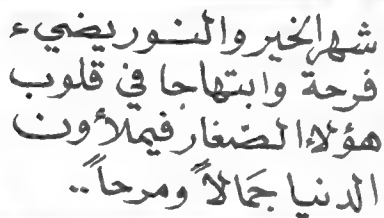 شهر الخير والنور يضيء
فرحة وابتهاجا في قلوب
هؤلاء الصّغار فيملأون
الدنيا جَمالاً ومرحاً..